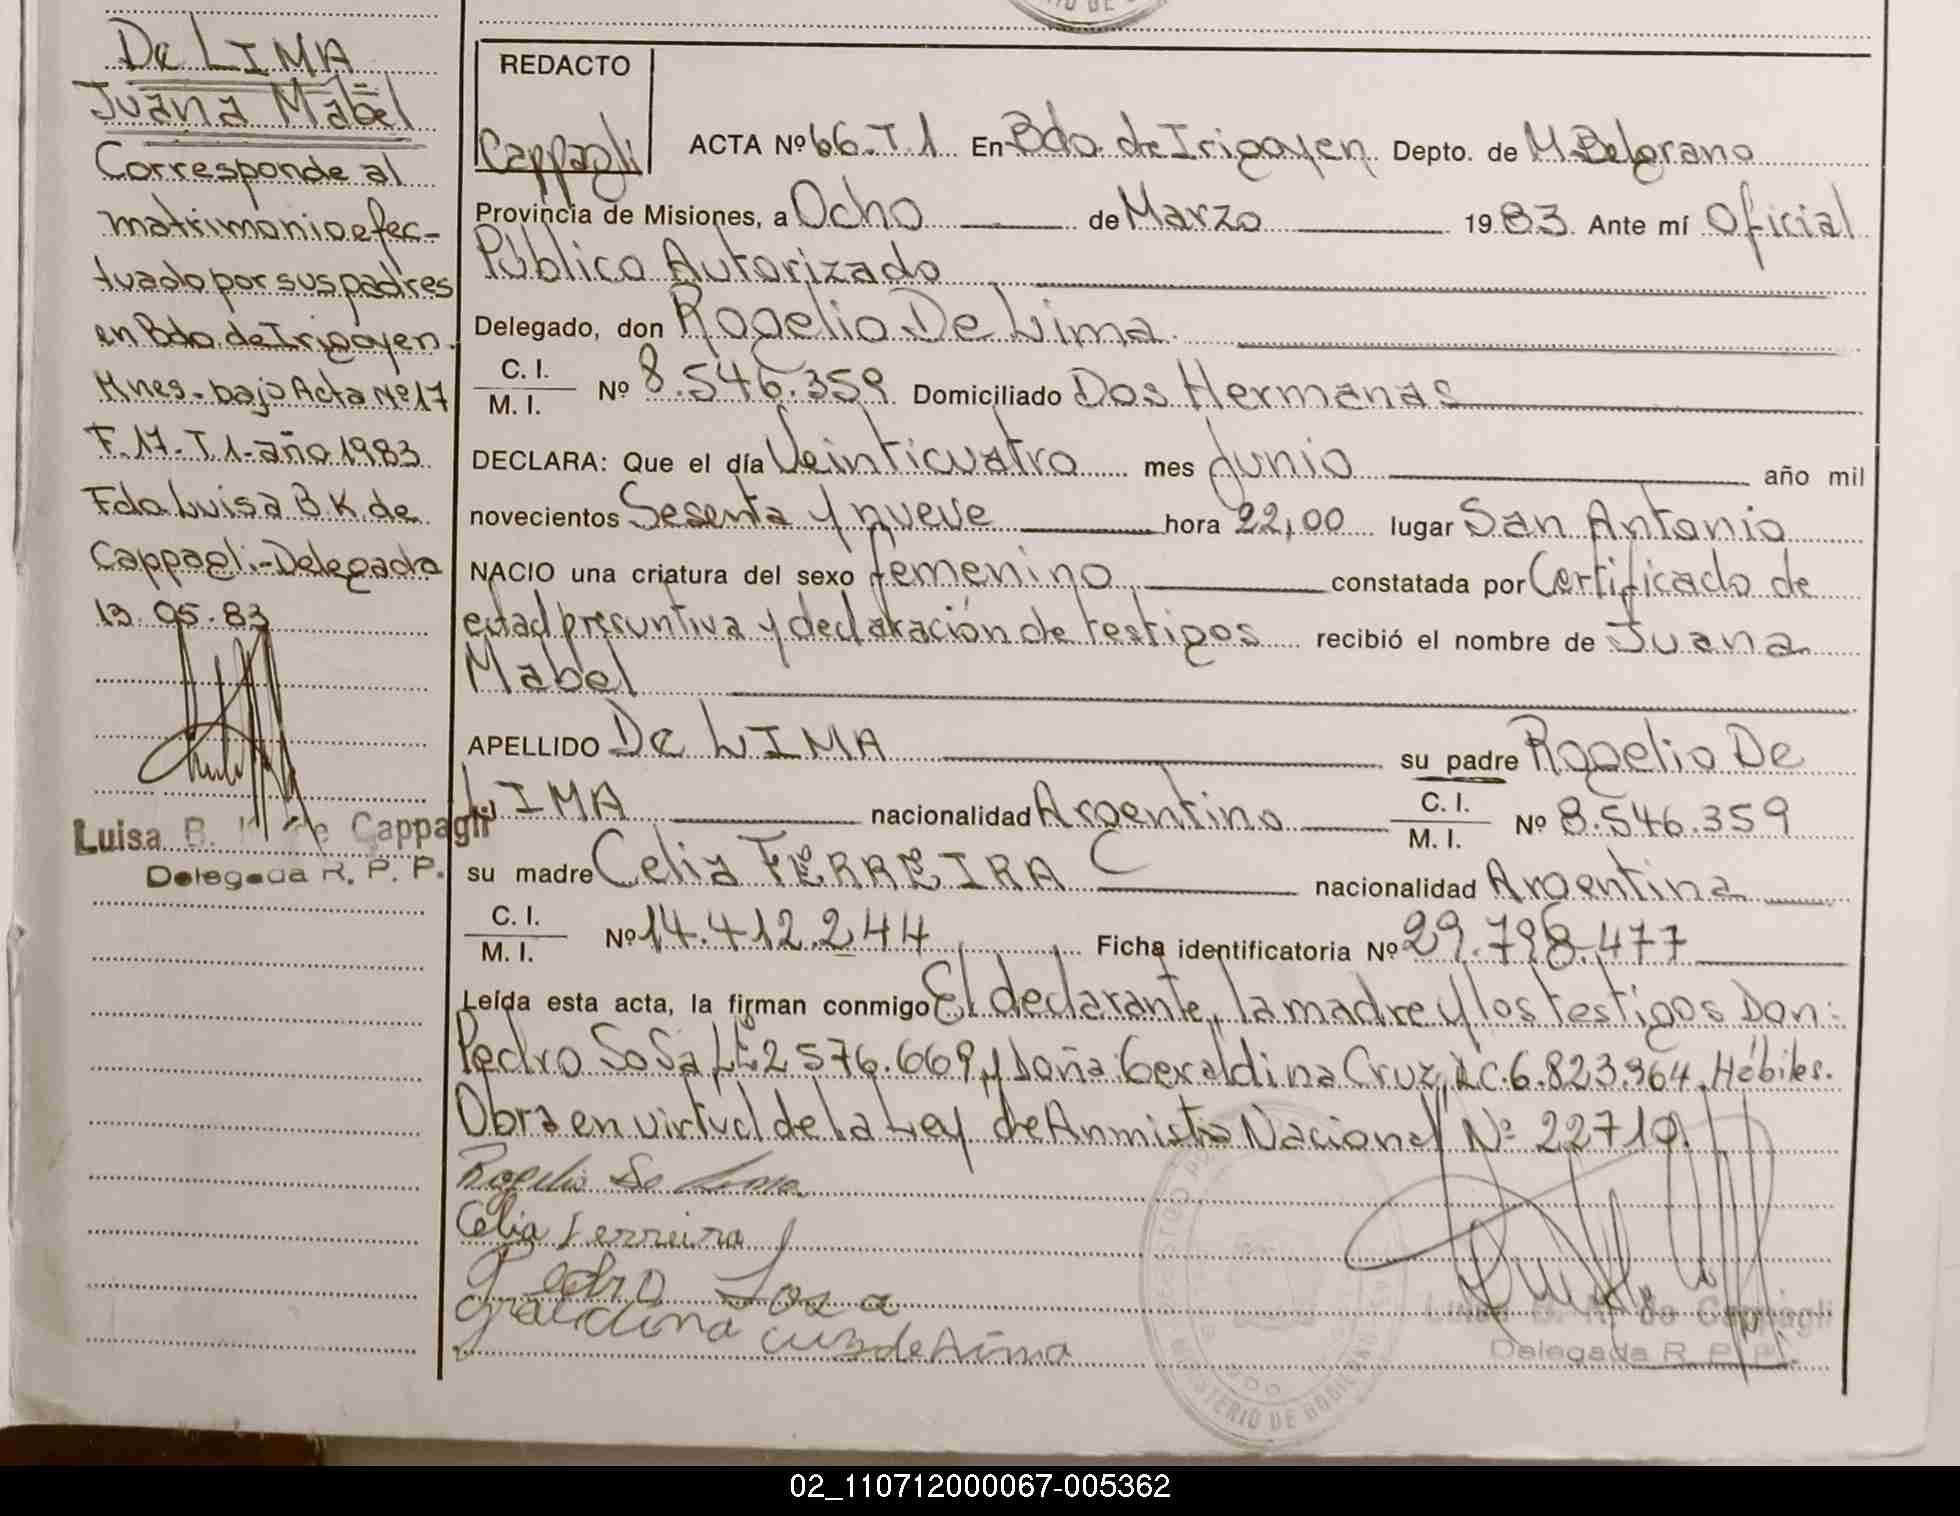 De LIMA
Juana Mabel
Corresponde al
matrimonio efec-
tuado por sus padres
en Bdo. de Irigoyen.
Mnes. bajo Acta Nº 17
F. 17. T 1. año 1983
Fdo. Luisa B K. de
Cappagli.- Delegada
13.05.83
Luisa B. K. de Cappagli
Delegada R. P. P.
REDACTO
Cappagli
ACTA Nº 66. T 1 En Bdo. de Irigoyen Depto. de M. Belgrano
Provincia de Misiones, a Ocho de Marzo 1983. Ante mí Oficial
Público Autorizado
Delegado, don Rogelio De Lima.
C. I.
M. I. Nº 8.546.359 Domiciliado Dos Hermanas
DECLARA: Que el día Veinticuatro mes Junio año mil
novecientos Sesenta y nueve hora 22,00 lugar San Antonio
NACIO una criatura del sexo femenino constatada por Certificado de
edad presuntiva y declaración de testigos recibió el nombre de Juana
Mabel
APELLIDO De LIMA su padre Rogelio De
LIMA nacionalidad Argentino C. I. M. I. Nº 8.546.359
su madre Celia FERREIRA C nacionalidad Argentina
C. I.
M. I. Nº 14.412.244 Ficha identificatoria Nº 29.798.477
Leída esta acta, la firman conmigo El declarante, la madre y los testigos Don:
Pedro Sosa, LE 2 576.669 y Doña: Geraldina Cruz, LC. 6.823.964. Hábiles.
Obra en virtud de la Ley de Anmistia Nacional Nº 22710.
Rogelio De Lima
Celia Ferreira
Pedro Sosa
MINISTERIO DE GOBIERNO
Luisa B. K. de Cappagli
Delegada R. P. P.
02_110712000067-005362